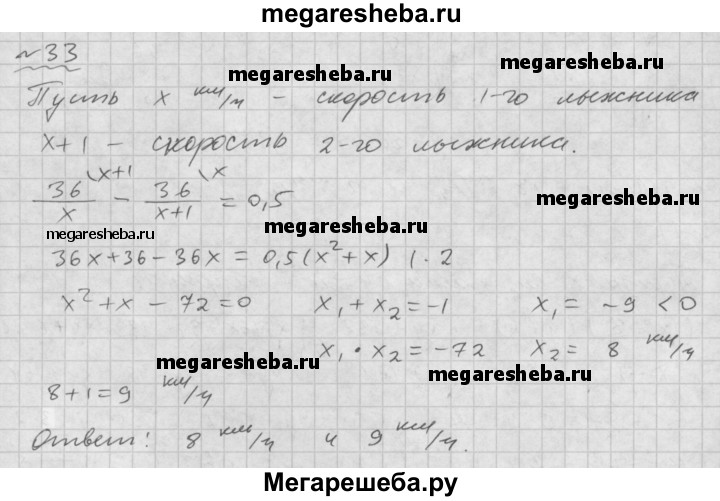 megaresheba.ru
№33
megaresheba.ru megaresheba.ru
Пусть x км/ч – скорость 1-го лыжника
x+1 – скорость 2-го лыжника.
36/x \x+1 – 36/x+1 \x = 0,5 megaresheba.ru
megaresheba.ru
36x+36-36x = 0,5(x²+x) | · 2
x²+x – 72=0 x₁+x₂=-1 x₁= -9 <0
megaresheba.ru x₁ · x₂=-72 x₂= 8 км/ч
megaresheba.ru
8+1=9 км/ч
Ответ: 8 км/ч и 9 км/ч.
Мегарешеба.ру